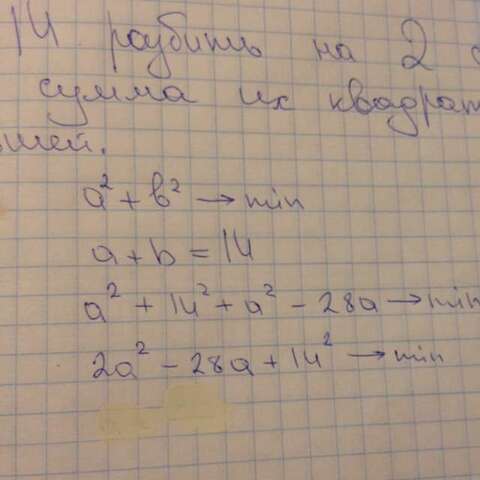 14 разбить на 2
сумма их квадрат
шей.
a² + b² → min
a + b = 14
a² + 14² + a² - 28a → min
2a² - 28a + 14² → min